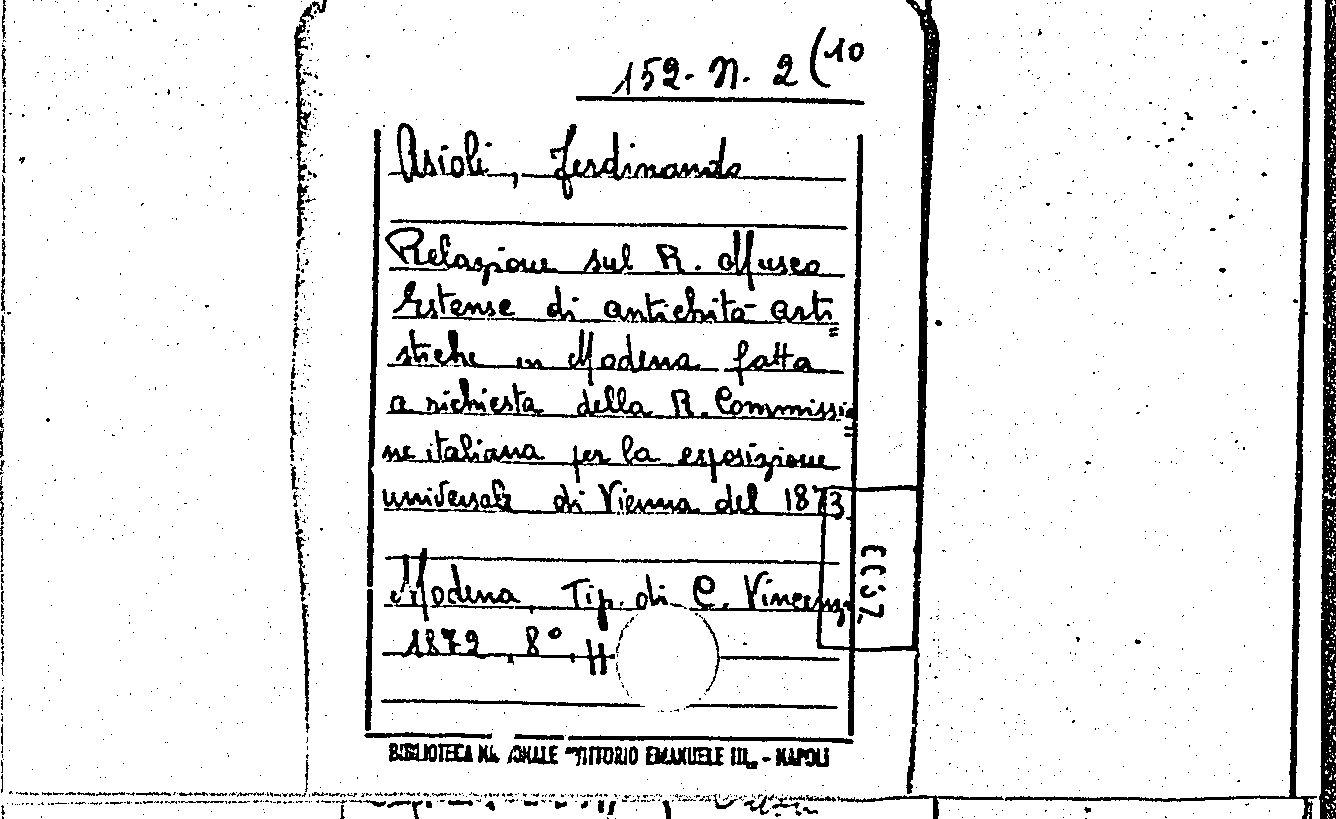 152. N. 2 (10
Asioli, Ferdinando
Relazione sul R. Museo
Estense di antichità arti=
stiche in Modena fatta
a richiesta della R. Commissio=
ne italiana per la esposizione
universale di Vienna del 1873.
Modena, Tip. di C. Vincenzi
1872, 8°,
BIBLIOTECA NAZIONALE "VITTORIO EMANUELE III" - NAPOLI